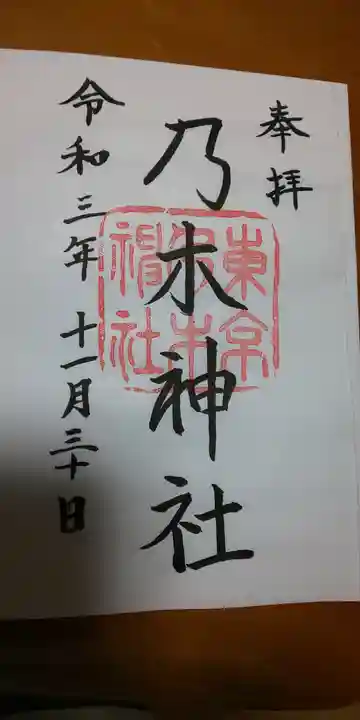 奉拝
乃木神社
東京
乃木
神社
令和三年 十一月三十日